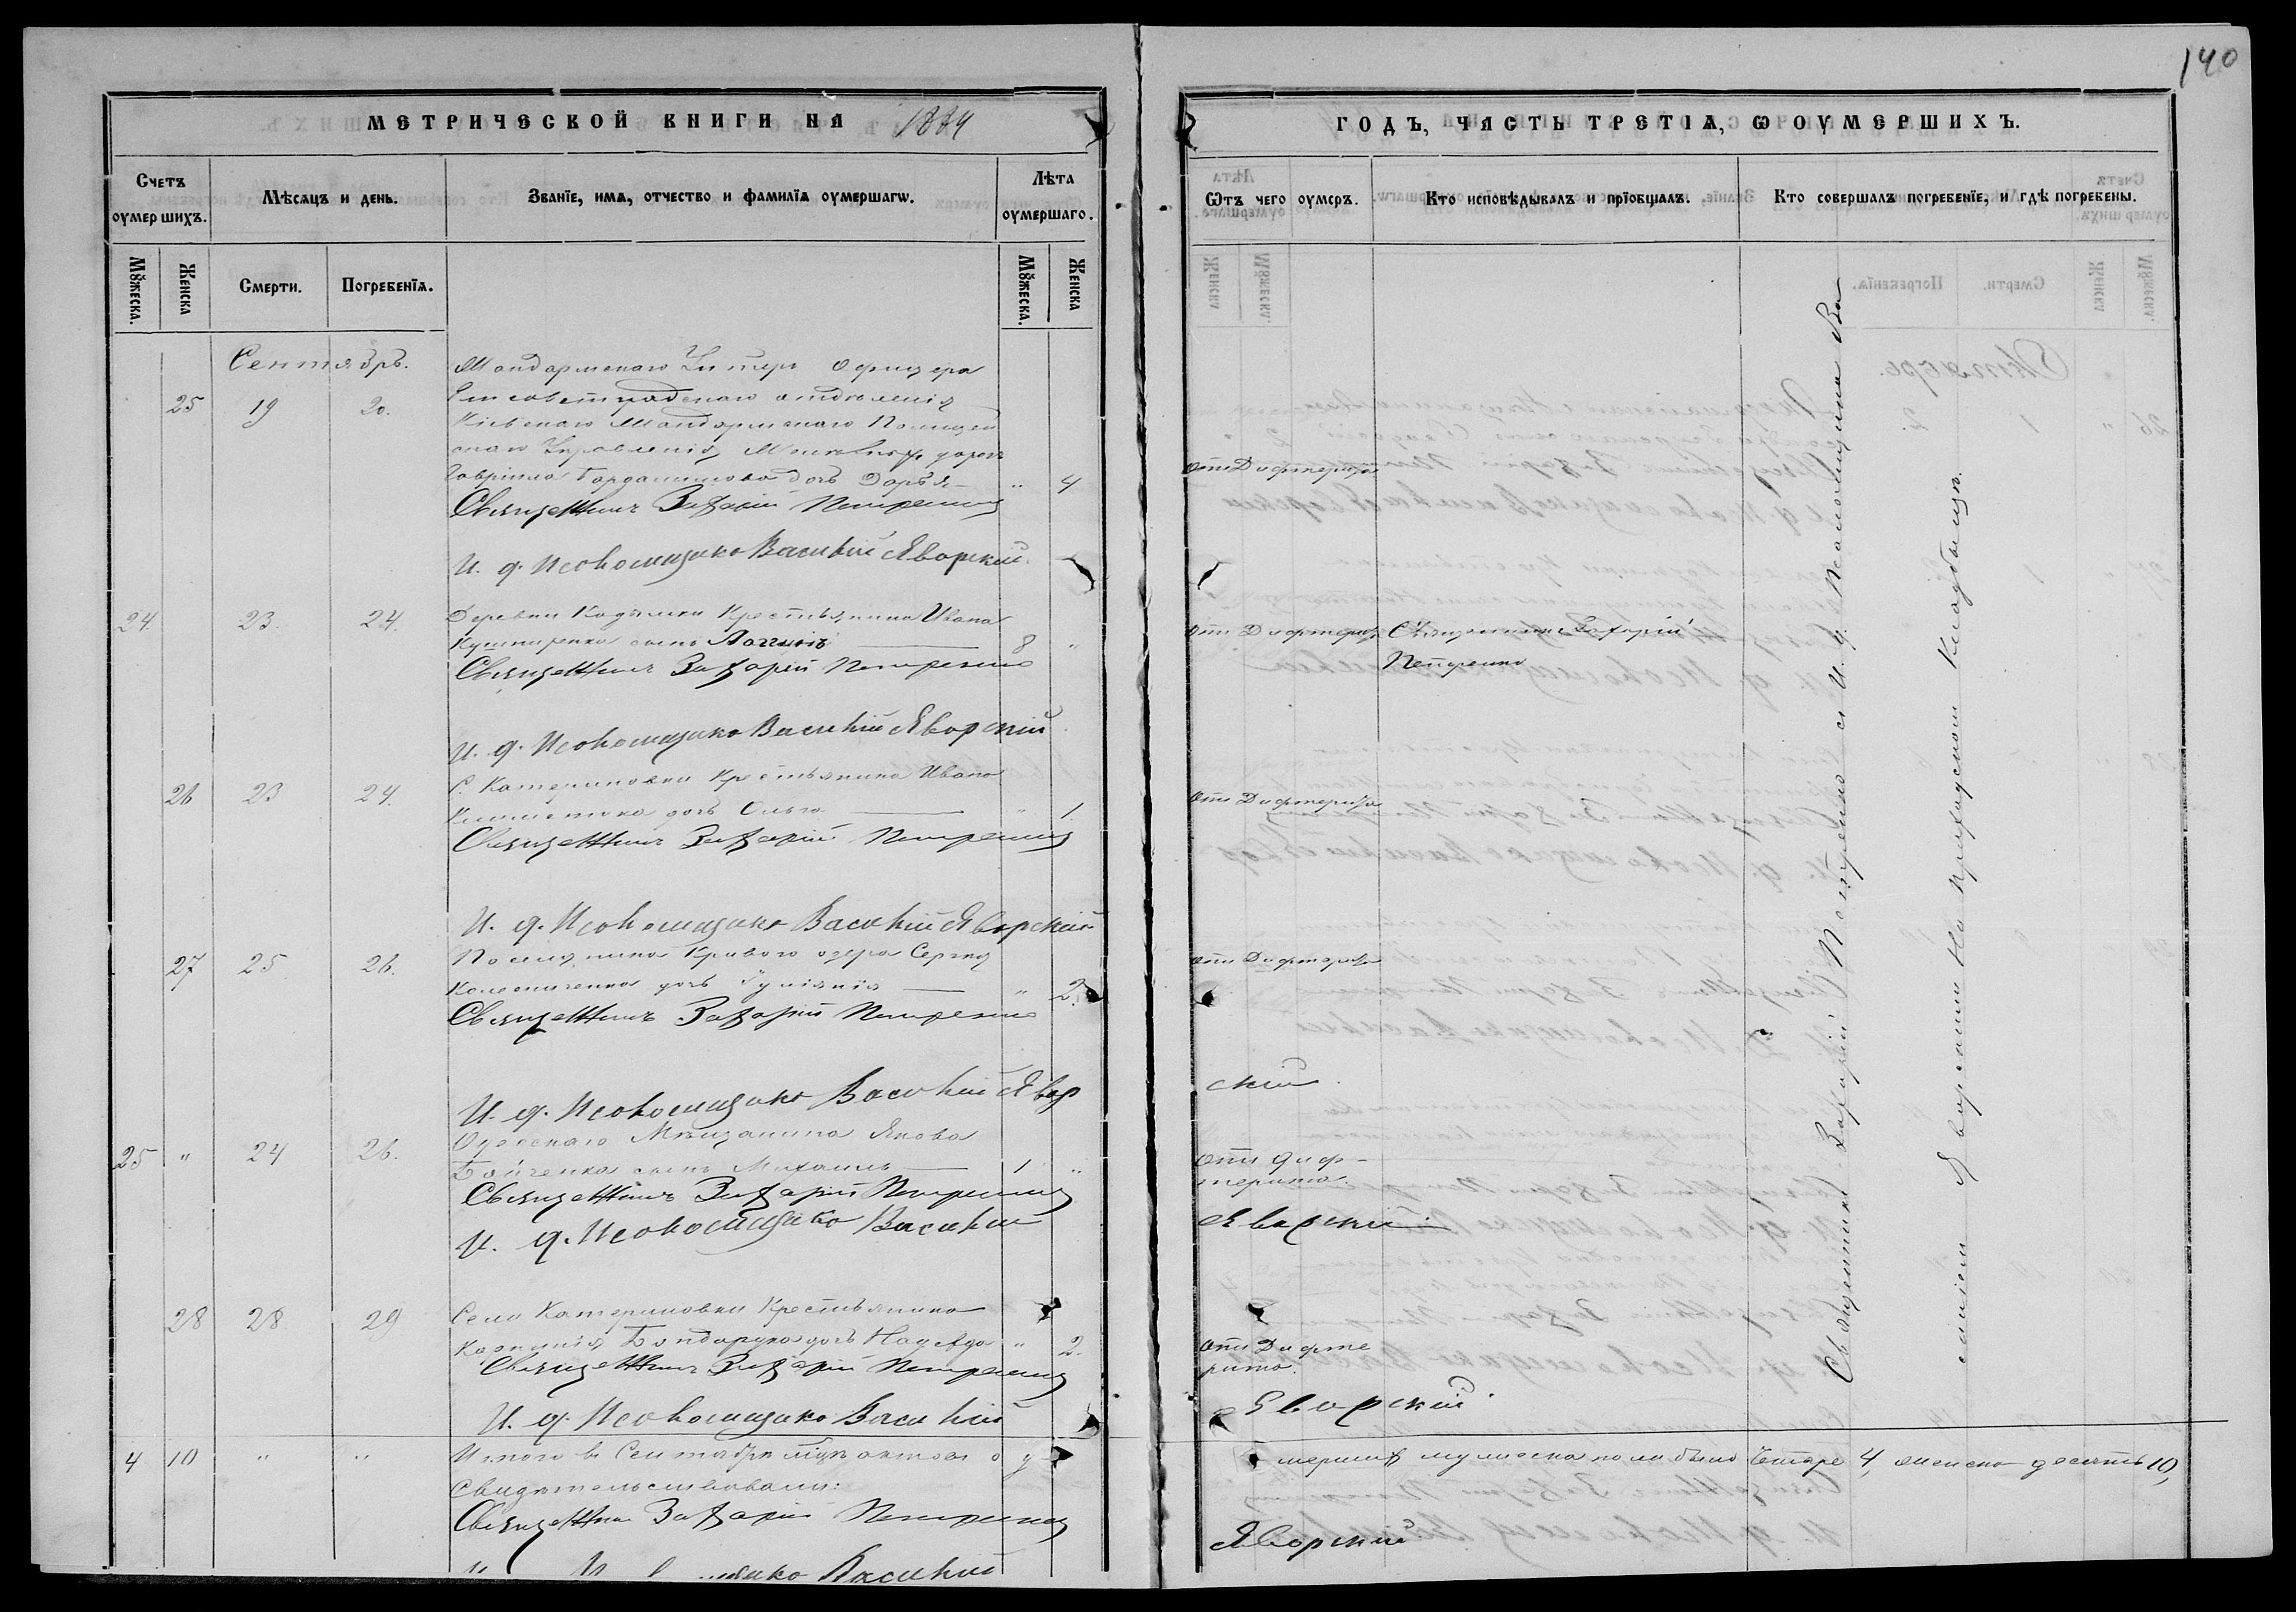 140
МЕТРИЧЕСКОЙ КНИГИ НА 1884
ГОДЪ, ЧАСТЬ ТРЕТІЯ, Ѡ ОУМЕРШИХЪ.
Счетъ оумершихъ.
Мѣсяцъ и день.
Званіе, имя, отчество и фамилія оумершагѡ.
Лѣта оумершаго.
Ѿтъ чего оумеръ.
Кто исповѣдывалъ и пріобщалъ.
Кто совершалъ погребеніе, и гдѣ погребены.
Мꙋжеска.
Женска
Смерти.
Погребенія.
Мꙋжеска.
Женска
Сентябрь.
Жандармскаго Унтеръ Офицера
25 19 20. Елисаветградскаго отдѣленія
Кіевскаго Жандармскаго Полицей
скаго Управленія
Гавріила дочь Дарья " 4 отъ Дифтерита
Священникъ Захарій Петренко
И. д. Псаломщика Василій Яворскій
Деревни Крестьянина Ивана
24. 23. 24. Кушниренка сынъ 8 " отъ Дифтерита Священникъ Захарій
Петренко
Священникъ Захарій Петренко
И. д. Псаломщика Василій Яворскій
С. Катериновки Крестьянина Ивана
26 23 24. дочь Ольга " 1. отъ Дифтерита
Священникъ Захарій Петренко
И. д. Псаломщика Василій Яворскій
27 25 26. Поселянина Криваго озера Сергѣя
Колесниченка дочь Іуліанія " 2. отъ Дифтерита
Священникъ Захарій Петренко
И. д. Псаломщика Василій Явор
скій
Одесскаго Мѣщанина Якова
25 " 24 26. Бойченка сынъ Михаилъ 1 " отъ диф-
терита.
Священникъ Захарій Петренко
И. д. Псаломщика Василій Яворскій
28 28 29 Села Катериновки Крестьянина
Бондарука дочь Надежда " 2. отъ Дифте
рита.
Священникъ Захарій Петренко
И. д. Псаломщика Василій Яворскій
Священникъ Захарій Петренко съ И. д. Псаломщика Ва
силіем Яворскимъ На приходском Кладбищѣ.
4 10 " " Итого в Сентябрѣ о у мершихъ мужеска пола было Четыре 4, женска десять 10,
Свидѣтельствовали:
Священникъ Захарій Петренко
Василій Яворскій